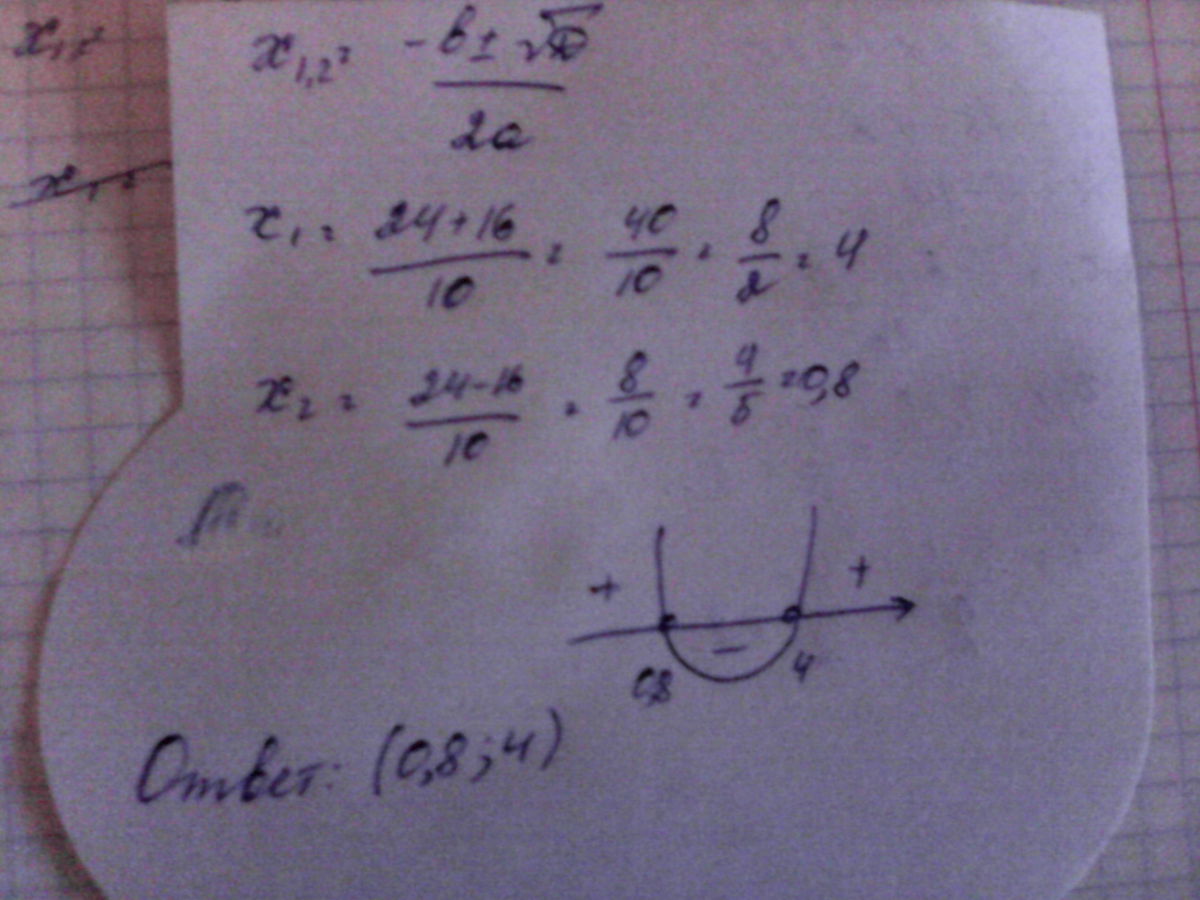 x₁=
x₁,₂= -b ± √D / 2a
x₁ =
x₁ = 24+16 / 10 = 40 / 10 = 8 / 2 = 4
x₂ = 24-16 / 10 = 8 / 10 = 4 / 5 = 0,8
+ − +
0,8 4
Ответ: (0,8; 4)